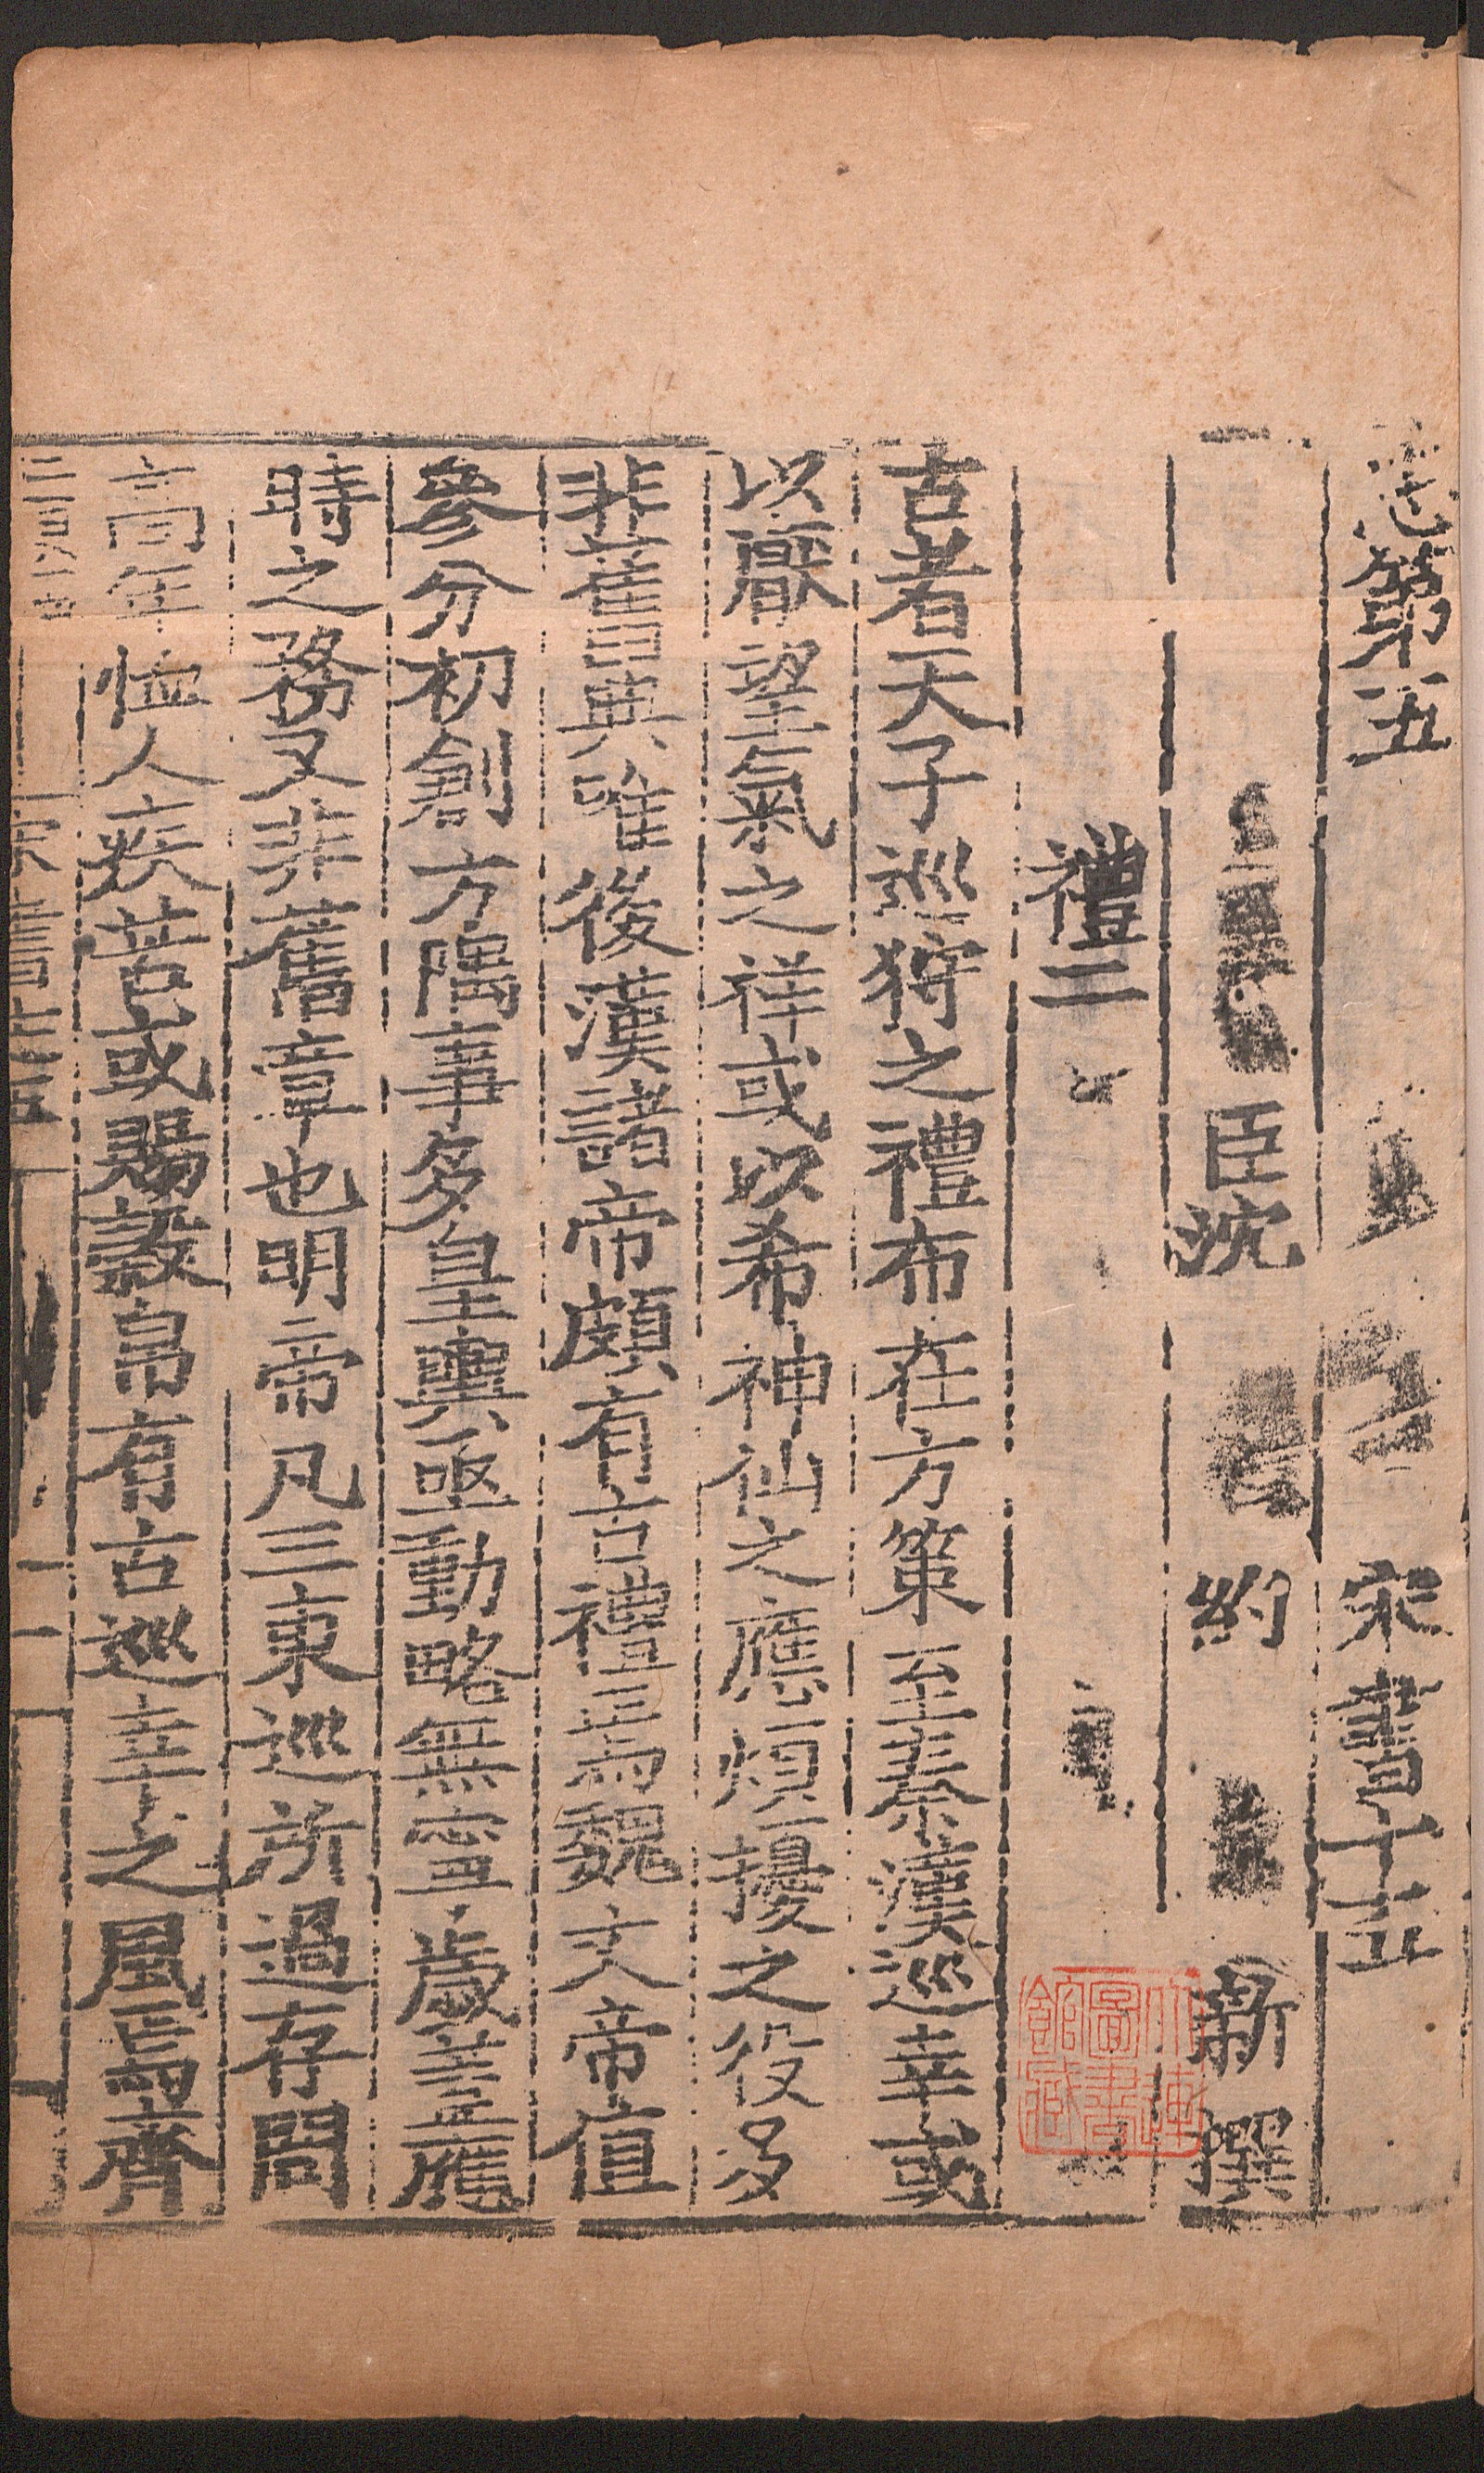 志第五 宋書十五
臣沈 約 新撰
禮二
古者天子巡狩之禮布在方策至秦漢巡幸或
以厭望氣之祥或以希神仙之應煩擾之役多
非舊典唯後漢諸帝頗有古禮焉魏文帝值
參分初創方隅事多皇輿亟動略無寧歲蓋應
時之務又非舊章也明帝凡三東巡所過存問
高年恤人疾苦或賜穀帛有古巡幸之風焉齊
大連圖書館藏